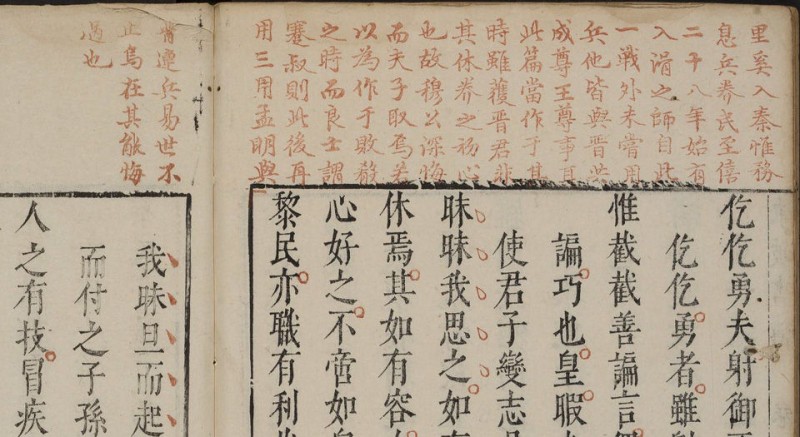 里奚入秦惟務
息兵养民至僖
二十八年始有
入滑之師自此
一戰外未嘗用
兵他皆與晋共
成尊王尊事耳
此篇當作于其
時雖獲晋君非
其休养之心
也故穆公深悔
而夫子取焉若
以為作于敗殽
之時而良士謂
蹇叔則此後再
用三用孟明與
仡仡勇夫射御
仡仡勇者雖
惟截截善諞言
諞巧也皇暇
使君子變志
昧昧我思之如
休焉其如有容
心好之不啻如
黎民亦職有利
嘗連兵易世不
止烏在其能悔
過也
我昧旦而起
而付之子孫
人之有技冒疾